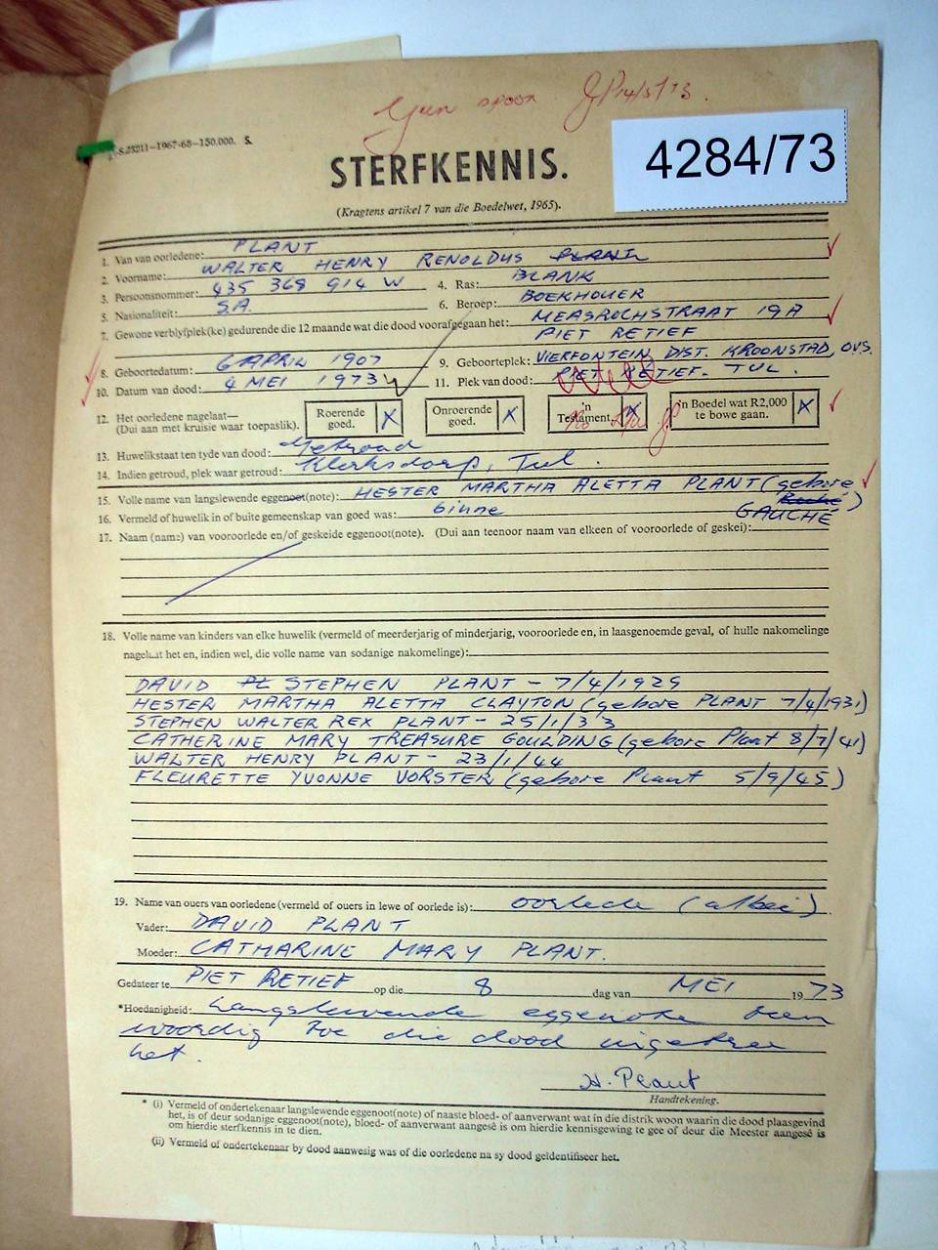 Geen spoor JP 14/5/73.
S.25211—1967-68—150,000. S.
4284/73
STERFKENNIS.
(Kragtens artikel 7 van die Boedelwet, 1965).
1. Van van oorledene: PLANT
2. Voorname: WALTER HENRY RENOLDUS PLANT
3. Persoonsnommer: 435 368 914 W 4. Ras: BLANK
5. Nasionaliteit: S.A. 6. Beroep: BOEKHOUER
7. Gewone verblyfplek(ke) gedurende die 12 maande wat die dood voorafgegaan het: MEASROCHSTRAAT 19A
PIET RETIEF
8. Geboortedatum: 6 APRIL 1907 9. Geboorteplek: VIERFONTEIN, DIST. KROONSTAD, OVS.
10. Datum van dood: 4 MEI 1973 11. Plek van dood: PIET RETIEF. TVL.
Will
12. Het oorledene nagelaat—
(Dui aan met kruisie waar toepaslik).
Roerende goed. X
Onroerende goed. X
'n Testament. X
'n Boedel wat R2,000 te bowe gaan. X
13. Huwelikstaat ten tyde van dood: Getroud
14. Indien getroud, plek waar getroud: Klerksdorp, Tvl.
15. Volle name van langslewende eggenoot(note): HESTER MARTHA ALETTA PLANT (gebore
GAUCHÉ)
16. Vermeld of huwelik in of buite gemeenskap van goed was: binne
17. Naam (name) van vooroorlede en/of geskeide eggenoot(note). (Dui aan teenoor naam van elkeen of vooroorlede of geskei):
18. Volle name van kinders van elke huwelik (vermeld of meerderjarig of minderjarig, vooroorlede en, in laasgenoemde geval, of hulle nakomelinge
nagelaat het en, indien wel, die volle name van sodanige nakomelinge):
DAVID PL STEPHEN PLANT - 7/4/1929
HESTER MARTHA ALETTA CLAYTON (gebore PLANT 7/4/1931)
STEPHEN WALTER REX PLANT - 25/1/33
CATHERINE MARY TREASURE GOULDING (gebore Plant 8/7/41)
WALTER HENRY PLANT - 23/1/44
FLEURETTE YVONNE VORSTER (gebore Plant 5/9/45)
19. Name van ouers van oorledene (vermeld of ouers in lewe of oorlede is): oorlede (albei).
Vader: DAVID PLANT
Moeder: CATHARINE MARY PLANT.
Gedateer te PIET RETIEF op die 8 dag van MEI 1973
*Hoedanigheid: Langslewende eggenote teen
woordig toe die dood ingetree
het.
H. Plant
Handtekening.
* (i) Vermeld of ondertekenaar langslewende eggenoot(note) of naaste bloed- of aanverwant wat in die distrik woon waarin die dood plaasgevind
het, is of deur sodanige eggenoot(note), bloed- of aanverwant aangesê is om hierdie kennisgewing te gee of deur die Meester aangesê is
om hierdie sterfkennis in te dien.
(ii) Vermeld of ondertekenaar by dood aanwesig was of die oorledene na sy dood geïdentifiseer het.